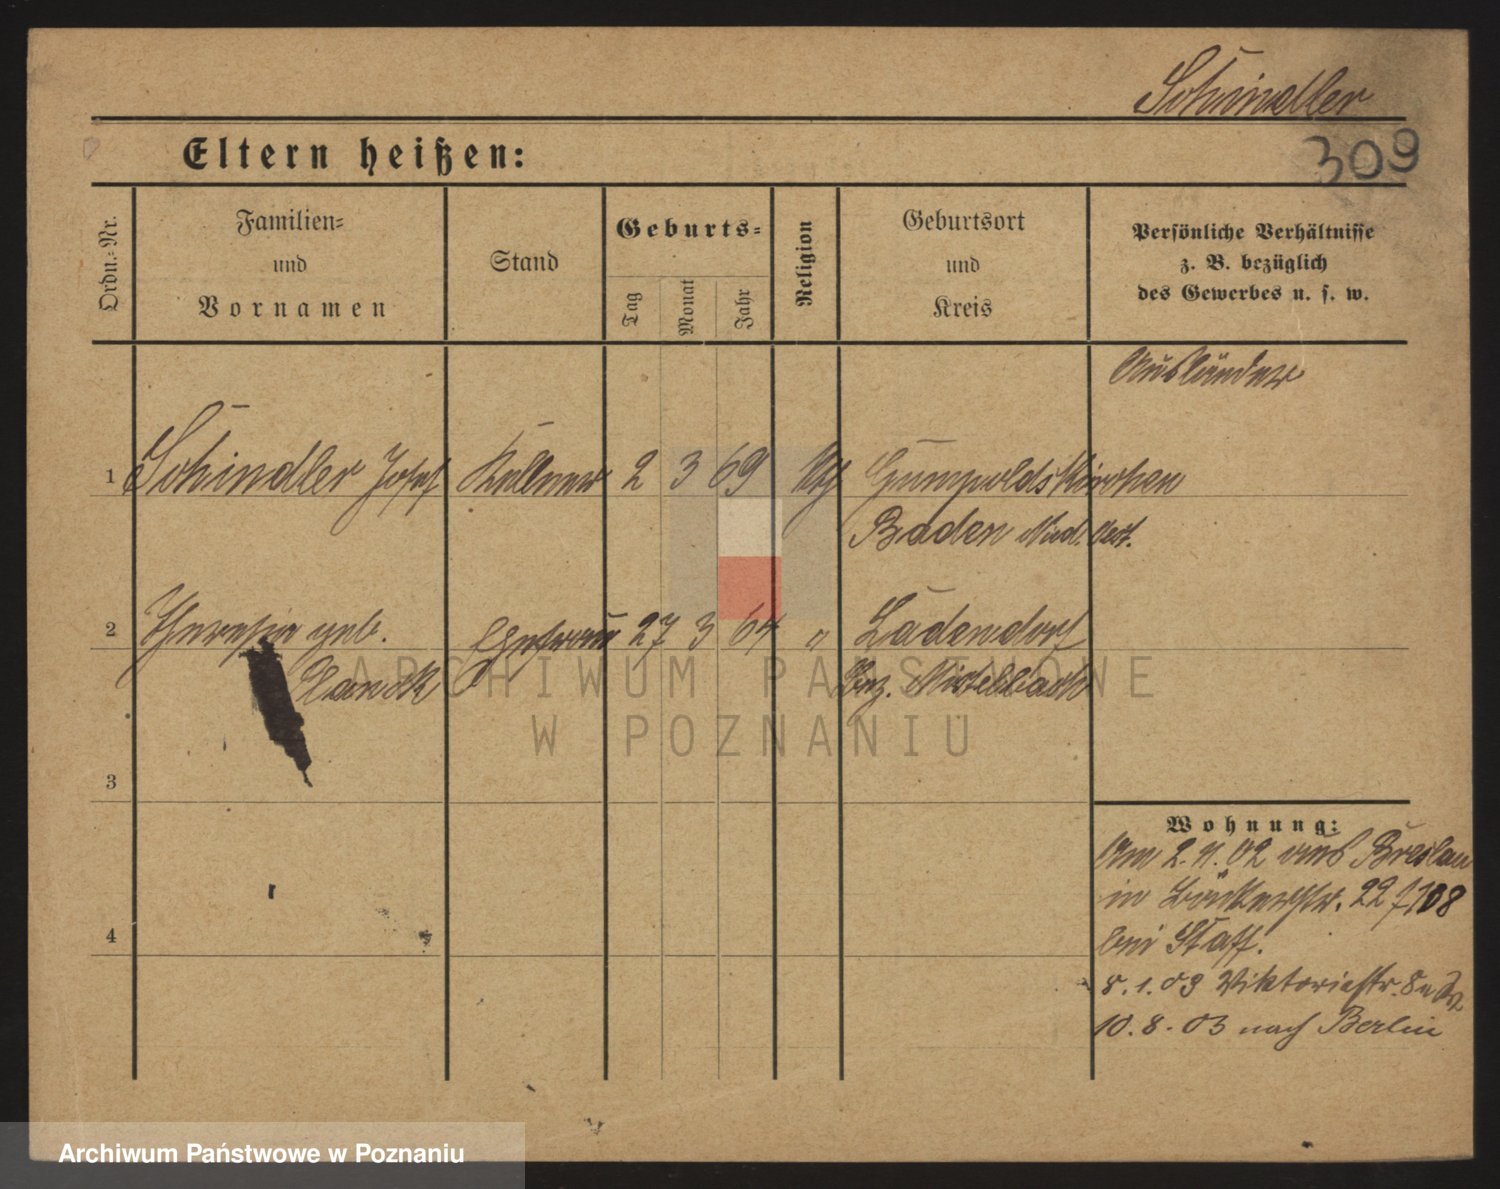 Schindler
309
Eltern heißen:
Ordn.-Nr.
Familien-
und
Vornamen
Stand
Geburts-
Tag
Monat
Jahr
Religion
Geburtsort
und
Kreis
Persönliche Verhältnisse
z. B. bezüglich
des Gewerbes u. s. w.
Ausländer
1 Schindler Josef Kellner 2 3 69 Gumpoldskirchen
Baden Nied. Oest.
2 Theresie geb. Ehefrau 27 3 64 " Ladendorf
Bez. Mistelbach
3
4
Wohnung:
Am 2. 4. 02 aus Breslau
in 22
bei Staff.
5. 1. 03 Viktoriastr. 8
10. 8. 03 nach Berlin
ARCHIWUM PAŃSTWOWE
W POZNANIU
Archiwum Państwowe w Poznaniu